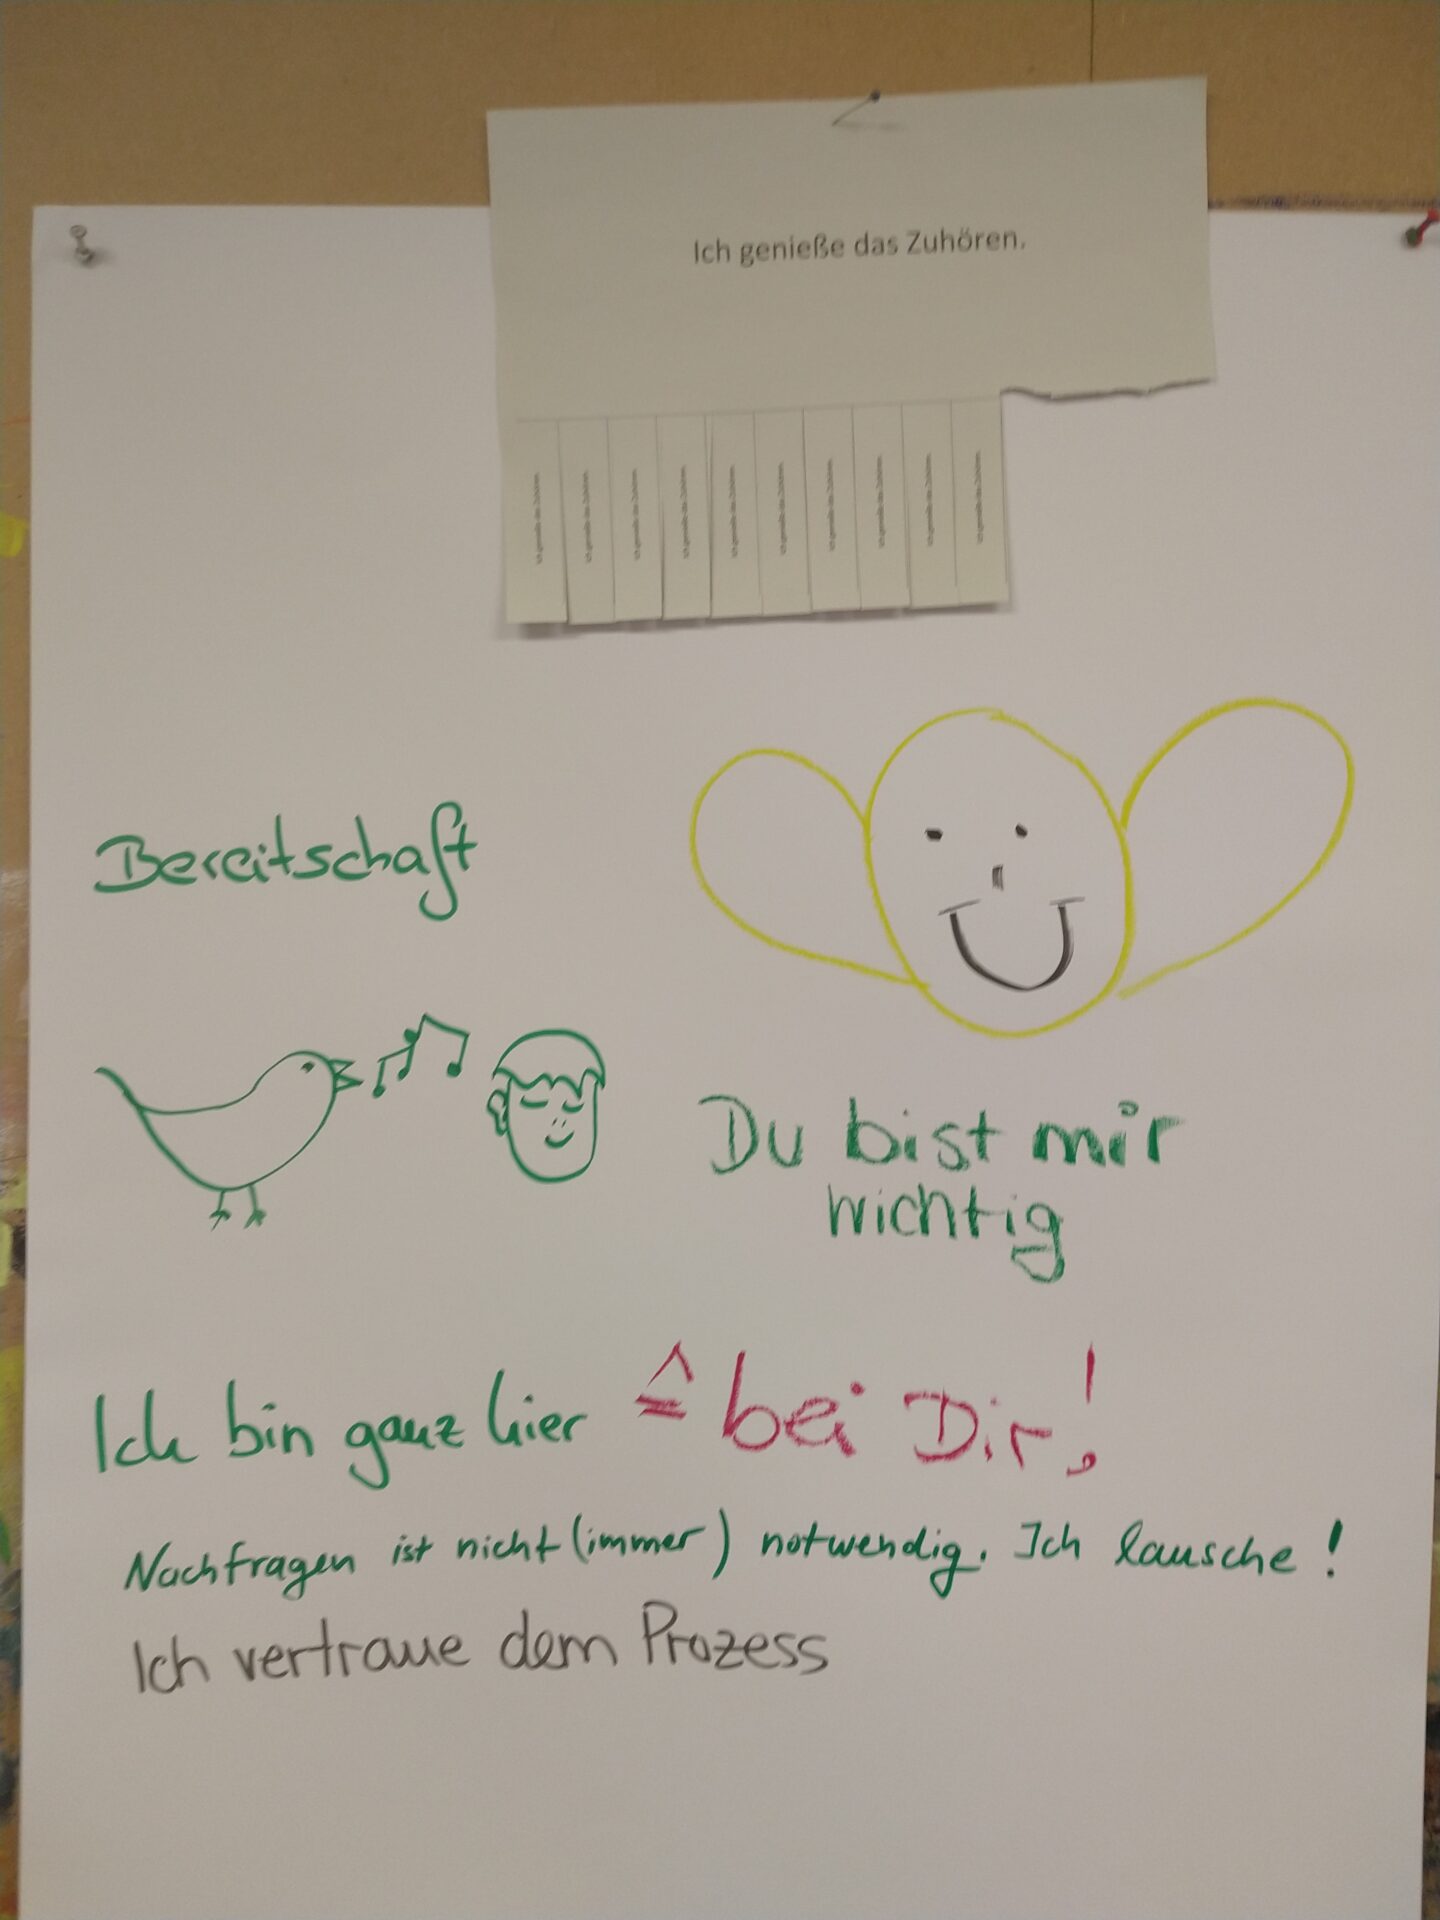 Ich genieße das Zuhören.
Ich genieße das Zuhören.
Ich genieße das Zuhören.
Ich genieße das Zuhören.
Ich genieße das Zuhören.
Ich genieße das Zuhören.
Ich genieße das Zuhören.
Ich genieße das Zuhören.
Ich genieße das Zuhören.
Ich genieße das Zuhören.
Ich genieße das Zuhören.
Bereitschaft
Du bist mir
wichtig
Ich bin ganz hier ≙ bei Dir!
Nachfragen ist nicht (immer) notwendig. Ich lausche!
Ich vertraue dem Prozess